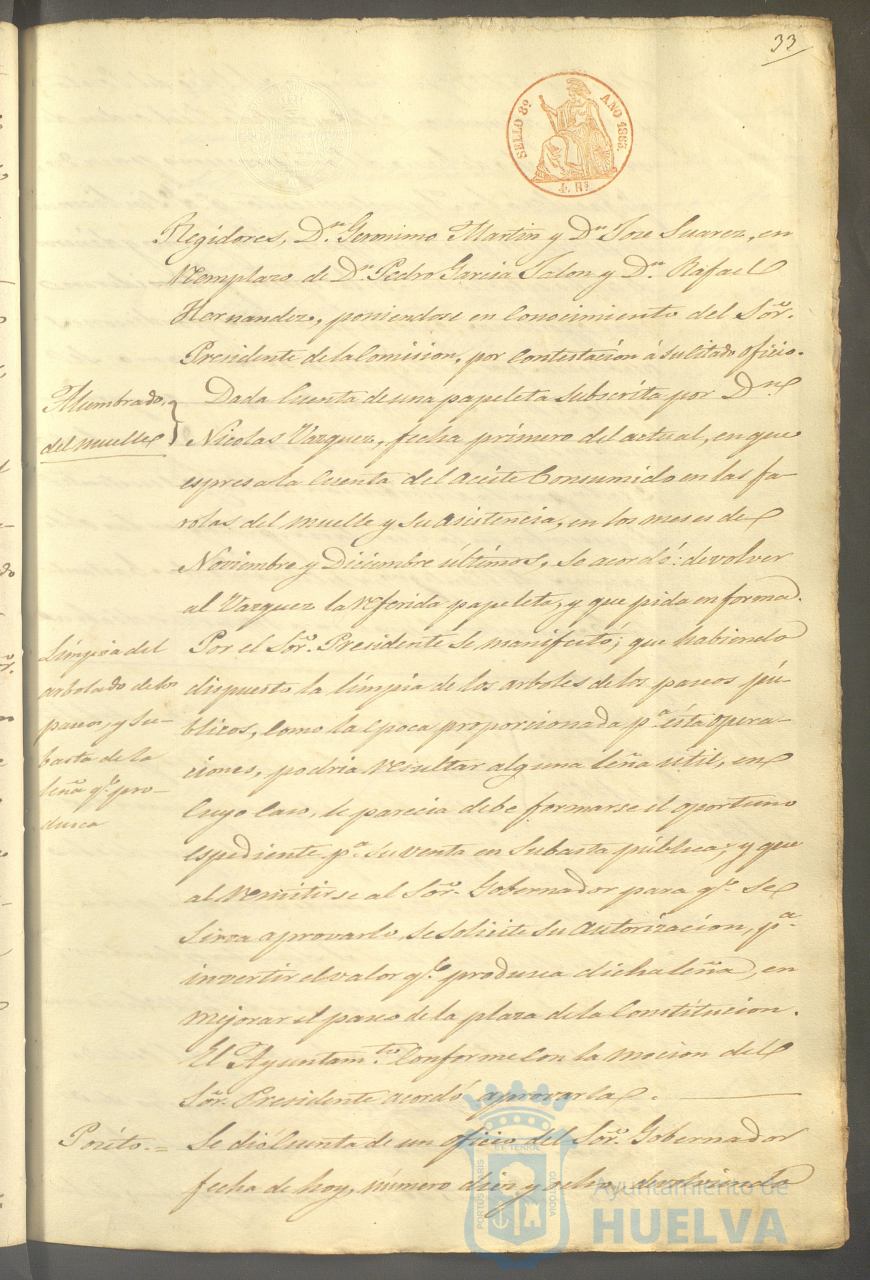 33
SELLO 8º AÑO 1863.
4 Rˢ
Regidores, Dⁿ Geronimo Martin y Dⁿ Jose Suarez, en
reemplazo de Dⁿ Pedro Garcia Jalon y Dⁿ. Rafael
Hernandez, poniendose en conocimiento del Sōr.
Presidente de la Comision, por contestación á su citado oficio.
Alumbrado
del muelle
Dada cuenta de una papeleta subscrita por Dⁿ
Nicolas Vazquez, fecha primero del actual, en que
espresa la cuenta del aceite consumido en las fa-
rolas del muelle y su asistencia, en los meses de
Noviembre y Diciembre últimos, se acordó: devolver
al Vazquez la referida papeleta, y que pida en forma.
Limpia del
arbolado de los
paseos, y su-
basta de la
leña qᵉ pro-
duzca
Por el Sōr. Presidente se manifestó; que habiendo
dispuesto la limpia de los arboles de los paseos pú-
blicos, como la epoca proporcionada pᵃ esta opera-
ciones, podria resultar alguna leña util, en
cuyo caso, le parecia debe formarse el oportuno
espediente pᵃ su venta en subasta pública, y que
al remitirse al Sōr. Gobernador para qᵉ se
sirva aprovarlo, se solicite su autorizacion, pᵃ
invertir el valor qᵉ produzca dicha leña, en
mejorar el paseo de la plaza de la Constitucion.
El Ayuntamᵗᵒ conforme con la mocion del
Sōr. Presidente acordó aprovarla.
Pósito.=
Se dió cuenta de un oficio del Sōr. Gobernador
fecha de hoy, número diez y ocho, devolviendo
PORTUS MARIS ET TERRE CUSTODIA
Ayuntamiento de
HUELVA